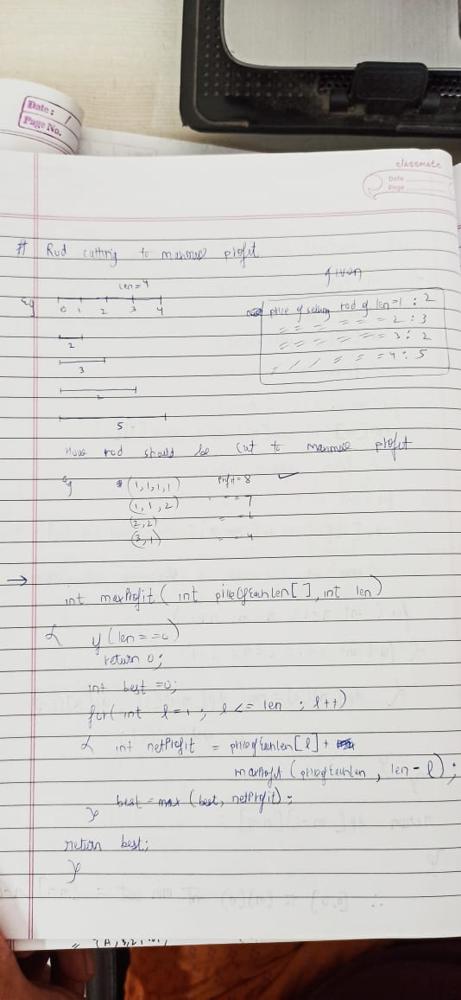 Date: /
Page No.
classmate
Date
Page
# Rod cutting to maximise profit
len=4
Eg 0 1 2 3 4
given
price of selling rod of len=1 : 2
= = = = = 2 : 3
= = = = = 3 : 2
= = = = = 4 : 5
2
3
2
5
How rod should be cut to maximise profit
eg (1,1,1,1) Profit = 8 ✓
(1,1,2) = 7
(2,2) = 6
(3,1) = 4
→
int maxProfit( int priceOfEachLen[ ], int len)
{ if (len==0)
return 0;
int best =0;
for( int l=1 ; l<= len ; l++)
{ int netProfit = priceOfEachLen[l] +
maxProfit (priceOfEachLen , len-l) ;
best=max (best, netProfit);
}
return best;
}